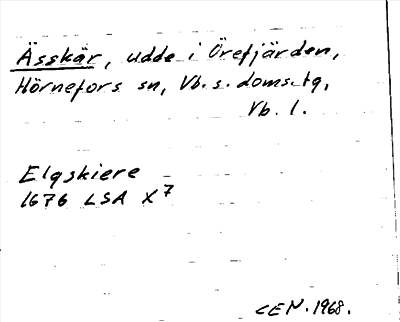 Ässkär, udde i Örefjärden,
Hörnefors sn, Vb. s. doms. tg,
Vb. l.
Elgskiere
1676 LSA X7
CEN. 1968.